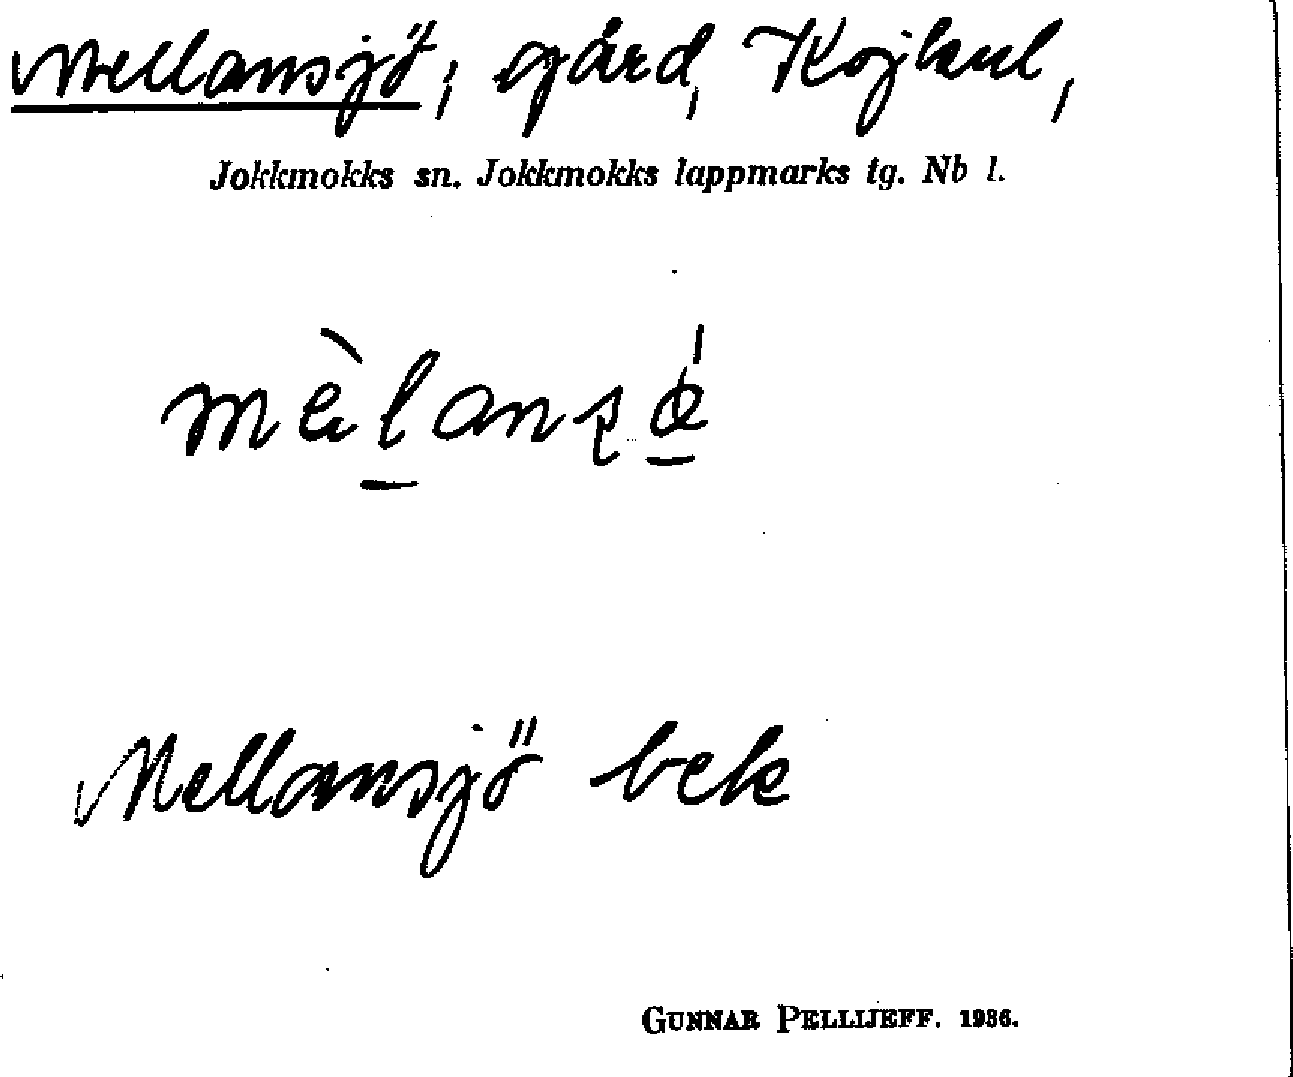 Mellansjö, gård, Kojkul,
Jokkmokks sn. Jokkmokks lappmarks tg. Nb l.
Mellansjö bek
GUNNAR PELLIJEFF. 1936.